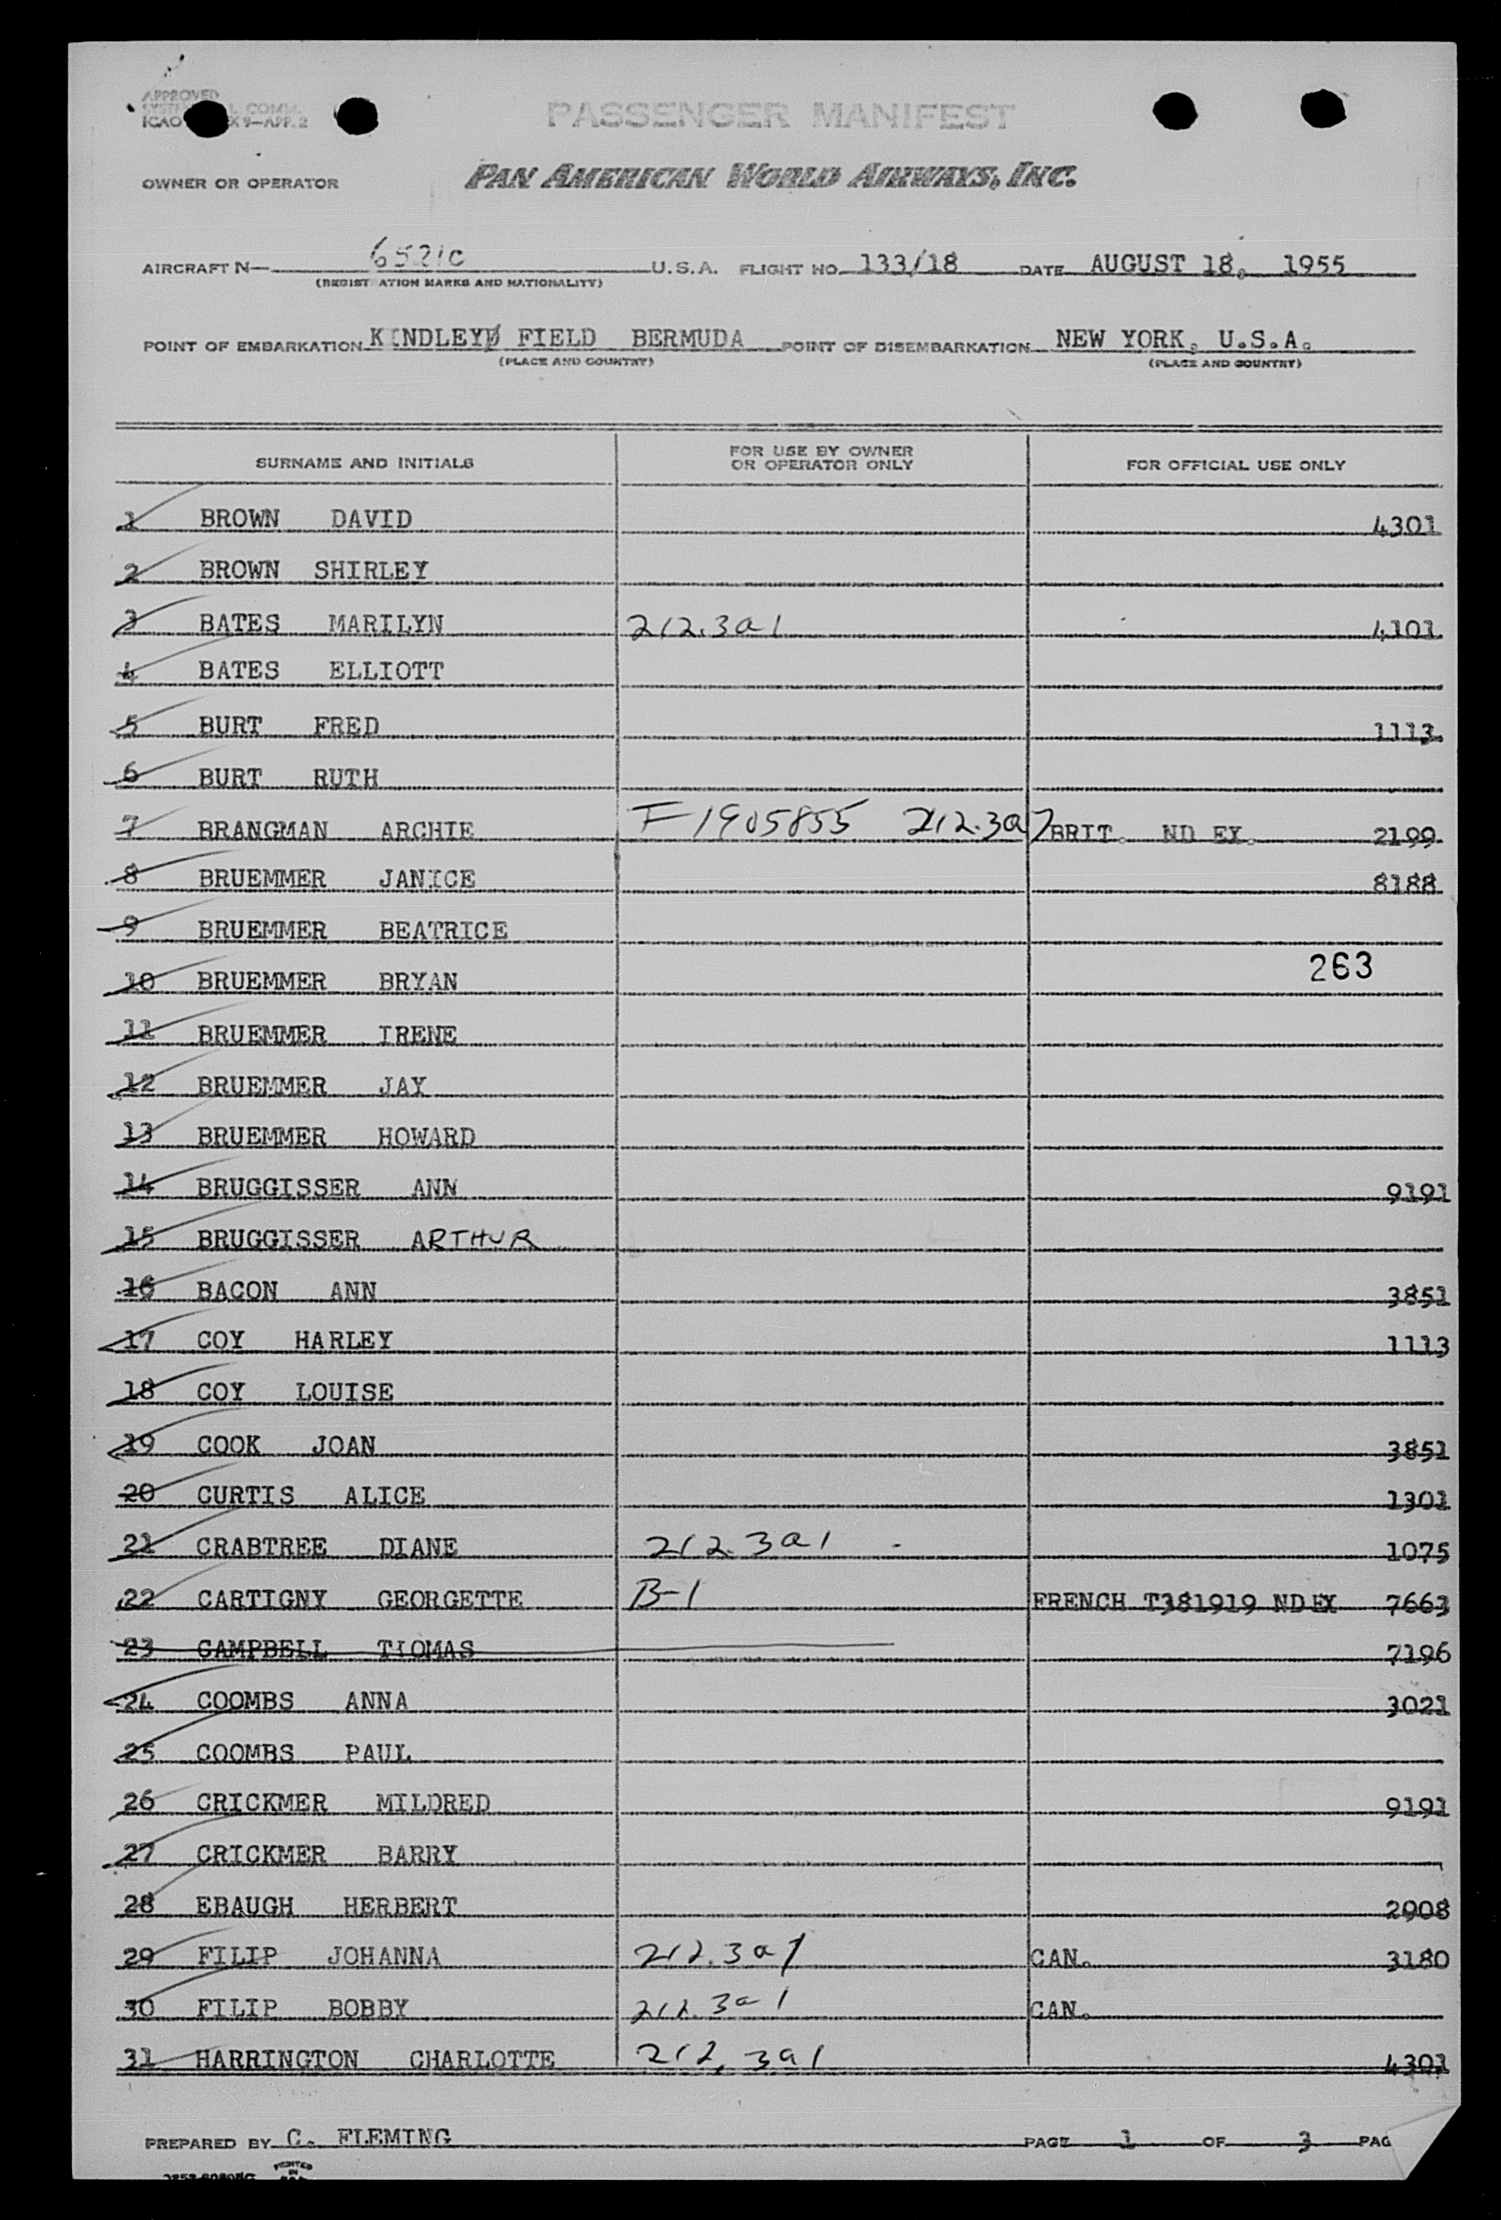 APPROVED
ICAO X 9—APP. 2
PASSENGER MANIFEST
OWNER OR OPERATOR PAN AMERICAN WORLD AIRWAYS, INC.
AIRCRAFT N— 6521C U.S.A. FLIGHT NO. 133/18 DATE AUGUST 18, 1955
(REGISTRATION MARKS AND NATIONALITY)
POINT OF EMBARKATION KINDLEY FIELD BERMUDA POINT OF DISEMBARKATION NEW YORK, U.S.A.
(PLACE AND COUNTRY) (PLACE AND COUNTRY)
SURNAME AND INITIALS FOR USE BY OWNER OR OPERATOR ONLY FOR OFFICIAL USE ONLY
1 BROWN DAVID 4301
2 BROWN SHIRLEY
3 BATES MARILYN 212.3a1 4101
4 BATES ELLIOTT
5 BURT FRED 1113
6 BURT RUTH
7 BRANGMAN ARCHIE F1905855 212.3a7 BRIT. ND EX. 2199
8 BRUEMMER JANICE 8188
9 BRUEMMER BEATRICE
263
10 BRUEMMER BRYAN
11 BRUEMMER IRENE
12 BRUEMMER JAY
13 BRUEMMER HOWARD
14 BRUGGISSER ANN 9191
15 BRUGGISSER ARTHUR
16 BACON ANN 3851
17 COY HARLEY 1113
18 COY LOUISE
19 COOK JOAN 3851
20 CURTIS ALICE 1301
21 CRABTREE DIANE 212.3a1 1075
22 CARTIGNY GEORGETTE B-1 FRENCH T381919 ND EX 7663
23 CAMPBELL THOMAS 7196
24 COOMBS ANNA 3021
25 COOMBS PAUL
26 CRICKMER MILDRED 9191
27 CRICKMER BARRY
28 EBAUGH HERBERT 2908
29 FILIP JOHANNA 212.3a1 CAN. 3180
30 FILIP BOBBY 212.3a1 CAN.
31 HARRINGTON CHARLOTTE 212.3a1 4301
PREPARED BY C. FLEMING PAGE 1 OF 3 PAG
PRINTED IN